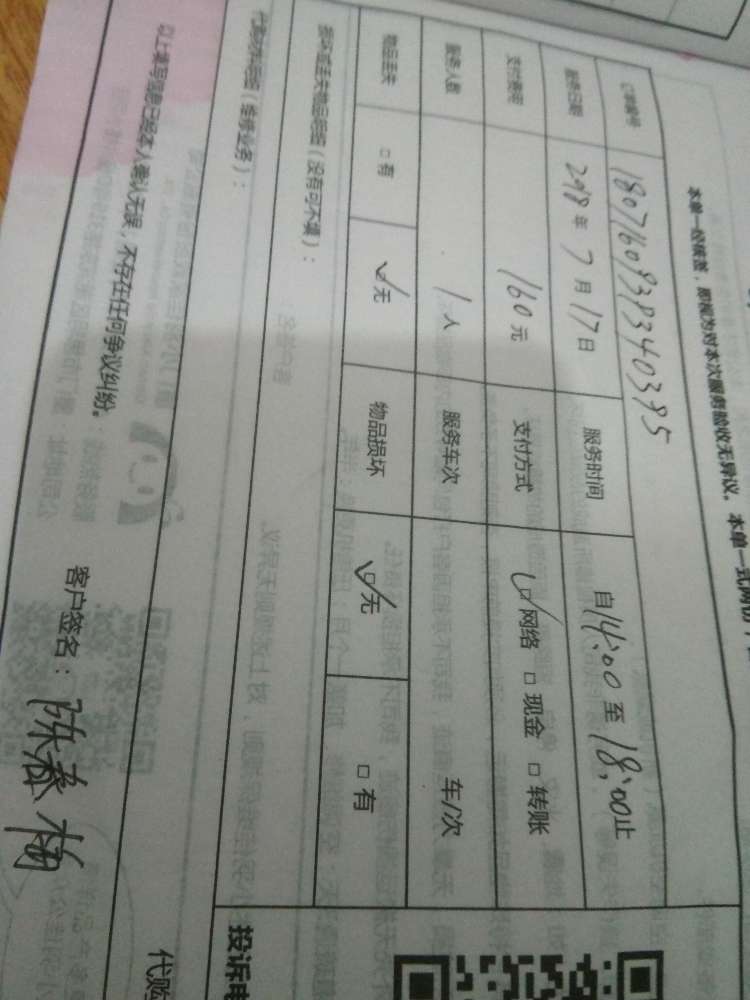 本单一经填签，即视为对本次服务验收无异议。本单一式两份
订单编号 1807160938340395
服务日期 2018年7月17日 服务时间 自14:00至18:00止
支付费用 160元 支付方式 ☑网络 □现金 □转账
服务人数 1人 服务车次 车/次
物品丢失 □有 ☑无 物品损坏 ☑无 □有
损坏或丢失物品明细（没有可不填）：
代购材料明细（维修业务）：
以上填写信息已经本人确认无误，不存在任何争议纠纷。 客户签名：陈春梅
投诉电
代购